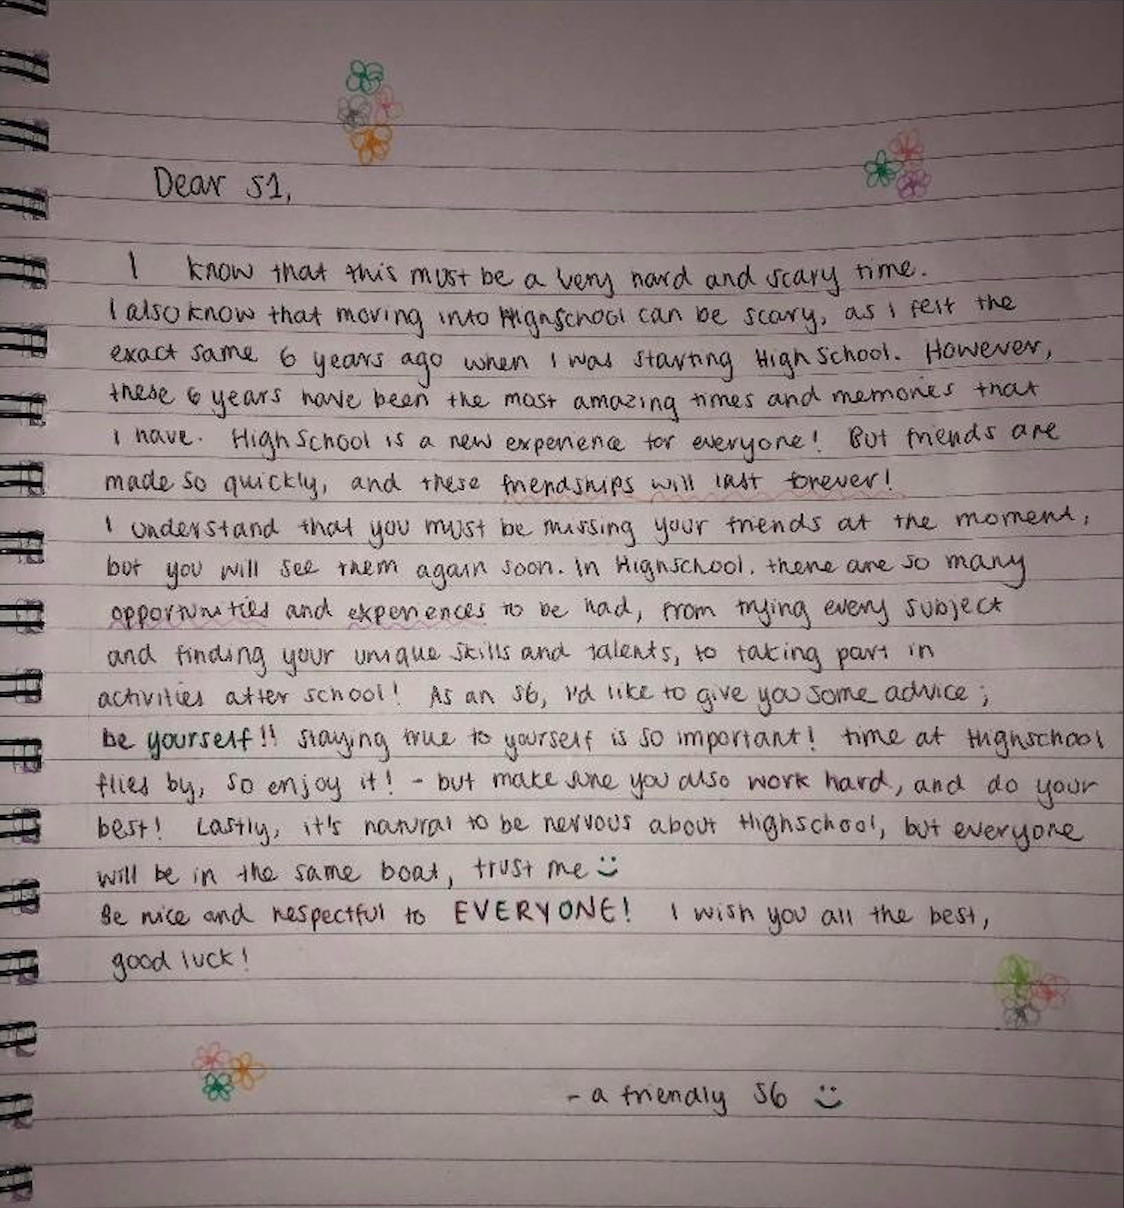 Dear S1,
I know that this must be a very hard and scary time.
I also know that moving into Highschool can be scary, as I felt the
exact same 6 years ago when I was starting High School. However,
these 6 years have been the most amazing times and memories that
I have. High School is a new experience for everyone! But friends are
made so quickly, and these friendships will last forever!
I understand that you must be missing your friends at the moment,
but you will see them again soon. In Highschool, there are so many
opportunities and experiences to be had, from trying every subject
and finding your unique skills and talents, to taking part in
activities after school! As an S6, I'd like to give you some advice;
be yourself!! Staying true to yourself is so important! Time at Highschool
flies by, so enjoy it! - but make sure you also work hard, and do your
best! Lastly, it's natural to be nervous about Highschool, but everyone
will be in the same boat, trust me :)
Be nice and respectful to EVERYONE! I wish you all the best,
good luck!
- a friendly S6 :)